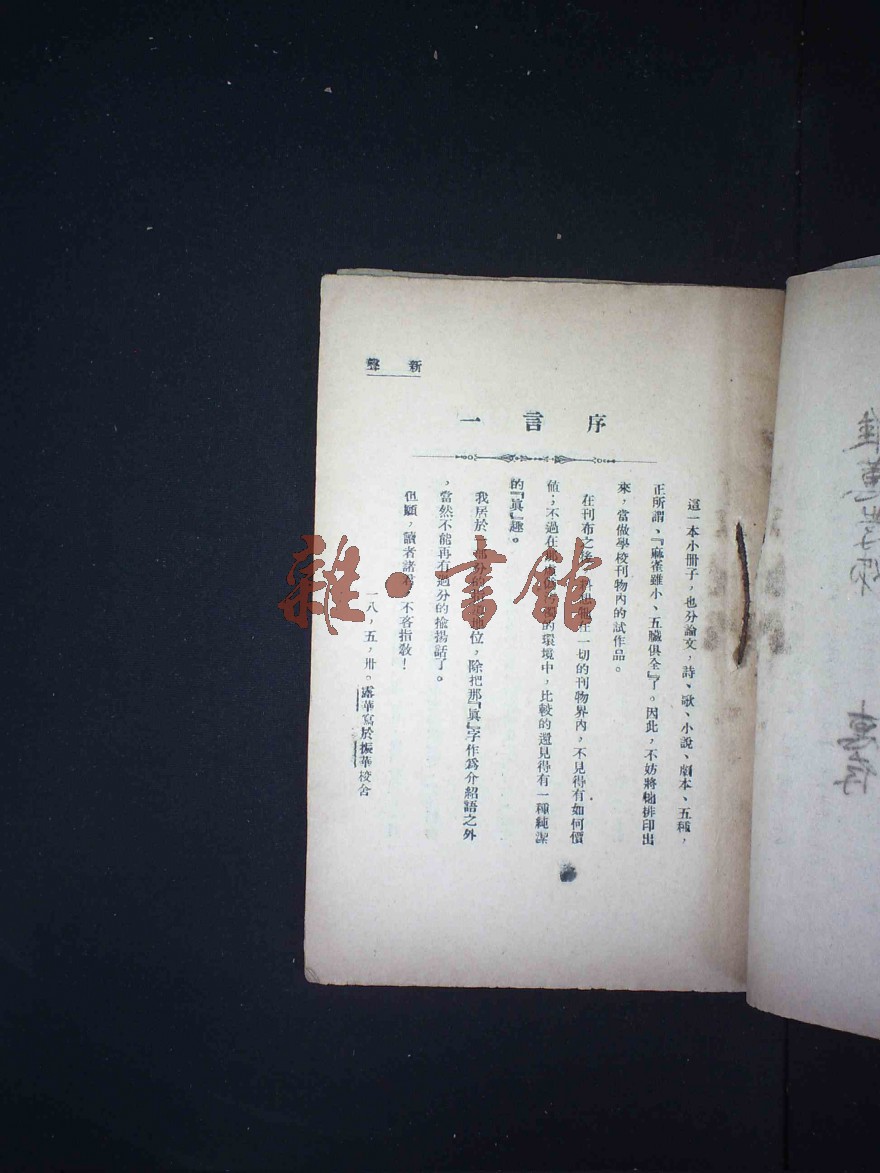 新聲
序言一
這一本小冊子，也分論文，詩、歌、小說、劇本、五種，
正所謂、『麻雀雖小、五臟俱全』了。因此，不妨將牠排印出
來，當做學校刊物內的試作品。
在刊布之後，一切的刊物界內，不見得有如何價
值；不過在的環境中，比較的還見得有一種純潔
的『眞』趣。
我居於部分的地位，除把那『眞』字作爲介紹語之外
，當然不能再有過分的揄揚話了。
但願，讀者諸君，不吝指敎！
一八，五，卅。露華寫於振華校舍
雜·書館